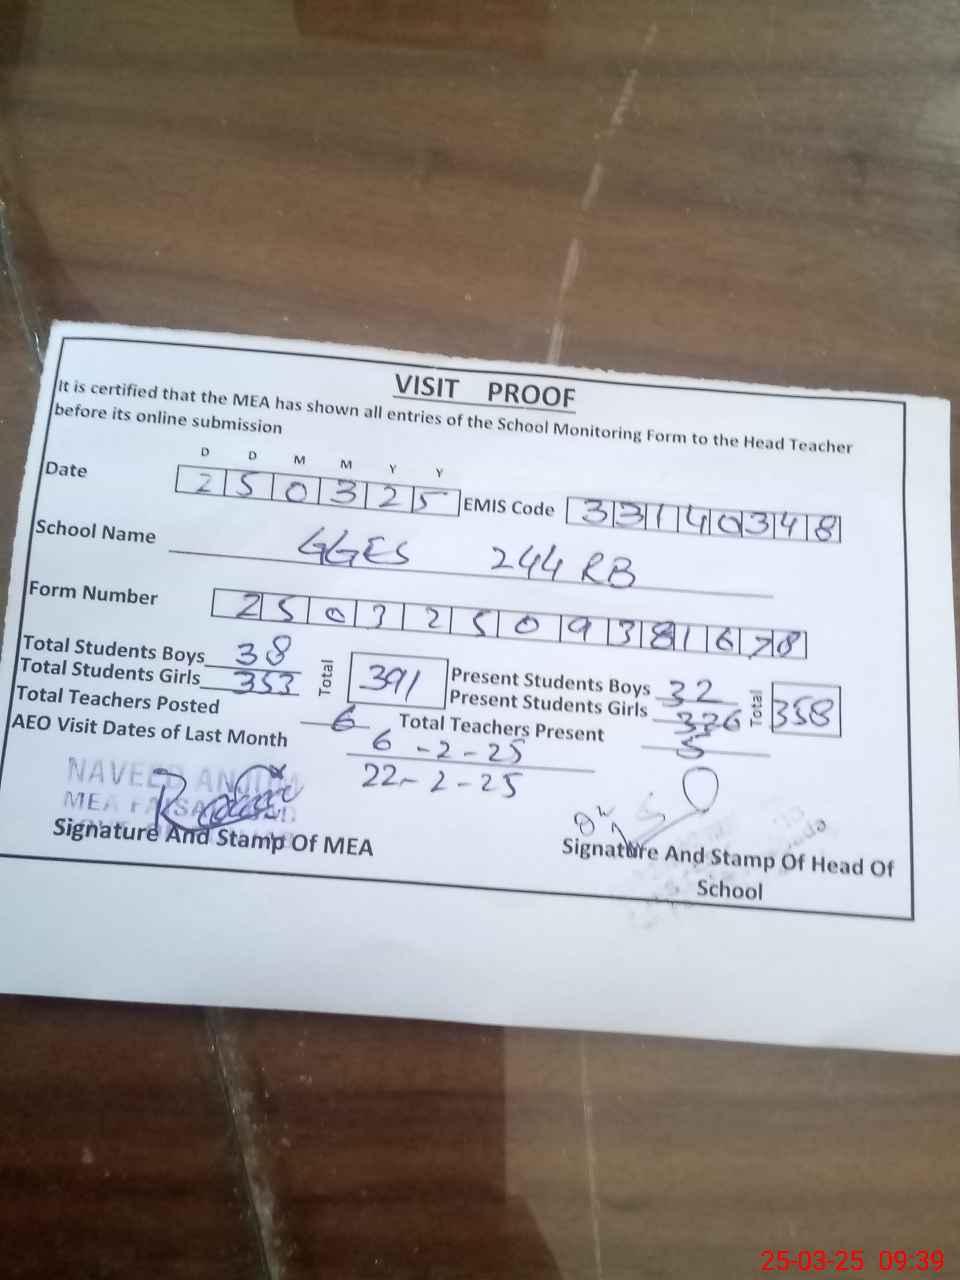 VISIT PROOF
It is certified that the MEA has shown all entries of the School Monitoring Form to the Head Teacher
before its online submission
D D M M Y Y
Date 2 5 0 3 2 5 EMIS Code 3 3 1 4 0 3 4 8
School Name GGES 244 RB
Form Number 2 5 0 3 2 5 0 9 3 8 1 6 7 8
Total Students Boys 38 Total 391 Present Students Boys 32 Total 358
Total Students Girls 353 Present Students Girls 326
Total Teachers Posted 6 Total Teachers Present 5
AEO Visit Dates of Last Month 6-2-25
22-2-25
NAVEED ANJUM
MEA
Signature And Stamp Of MEA
Signature And Stamp Of Head Of
School
25-03-25 09:39